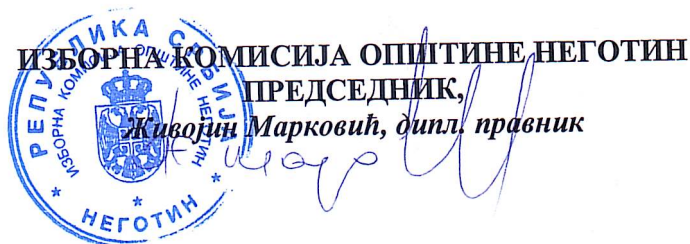 ИЗБОРНА КОМИСИЈА ОПШТИНЕ НЕГОТИН
ПРЕДСЕДНИК,
Живојин Марковић, дипл. правник
РЕПУБЛИКА СРБИЈА
ИЗБОРНА КОМИСИЈА ОПШТИНЕ НЕГОТИН
* НЕГОТИН *